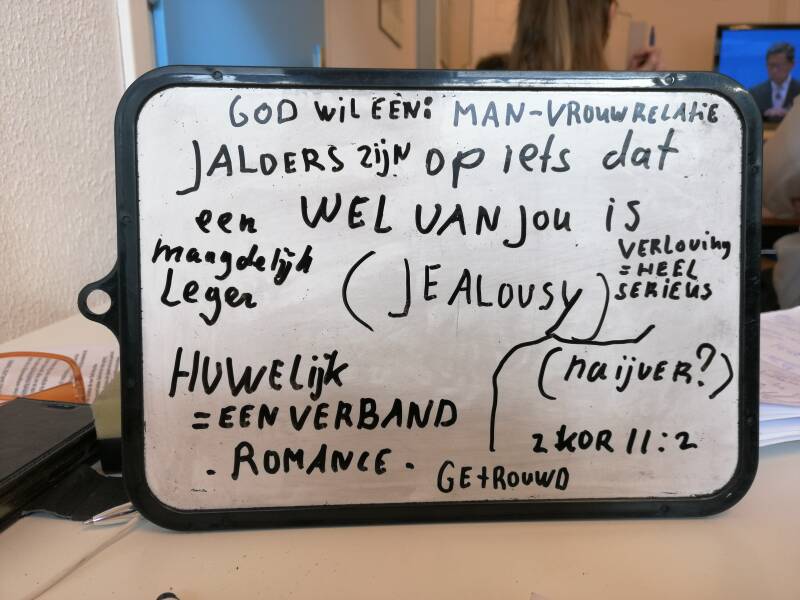 GOD WIL EEN: MAN-VROUW RELATIE
JALOERS ZIJN OP IETS dat
WEL VAN JOU IS
een
maagdelijk
Leger
(JEALOUSY)
VERLOVING
= HEEL
SERIEUS
(naijVER?)
HUWELijk
= EEN VERBAND
- ROMANCE -
2 KOR 11:2
GETROUWD